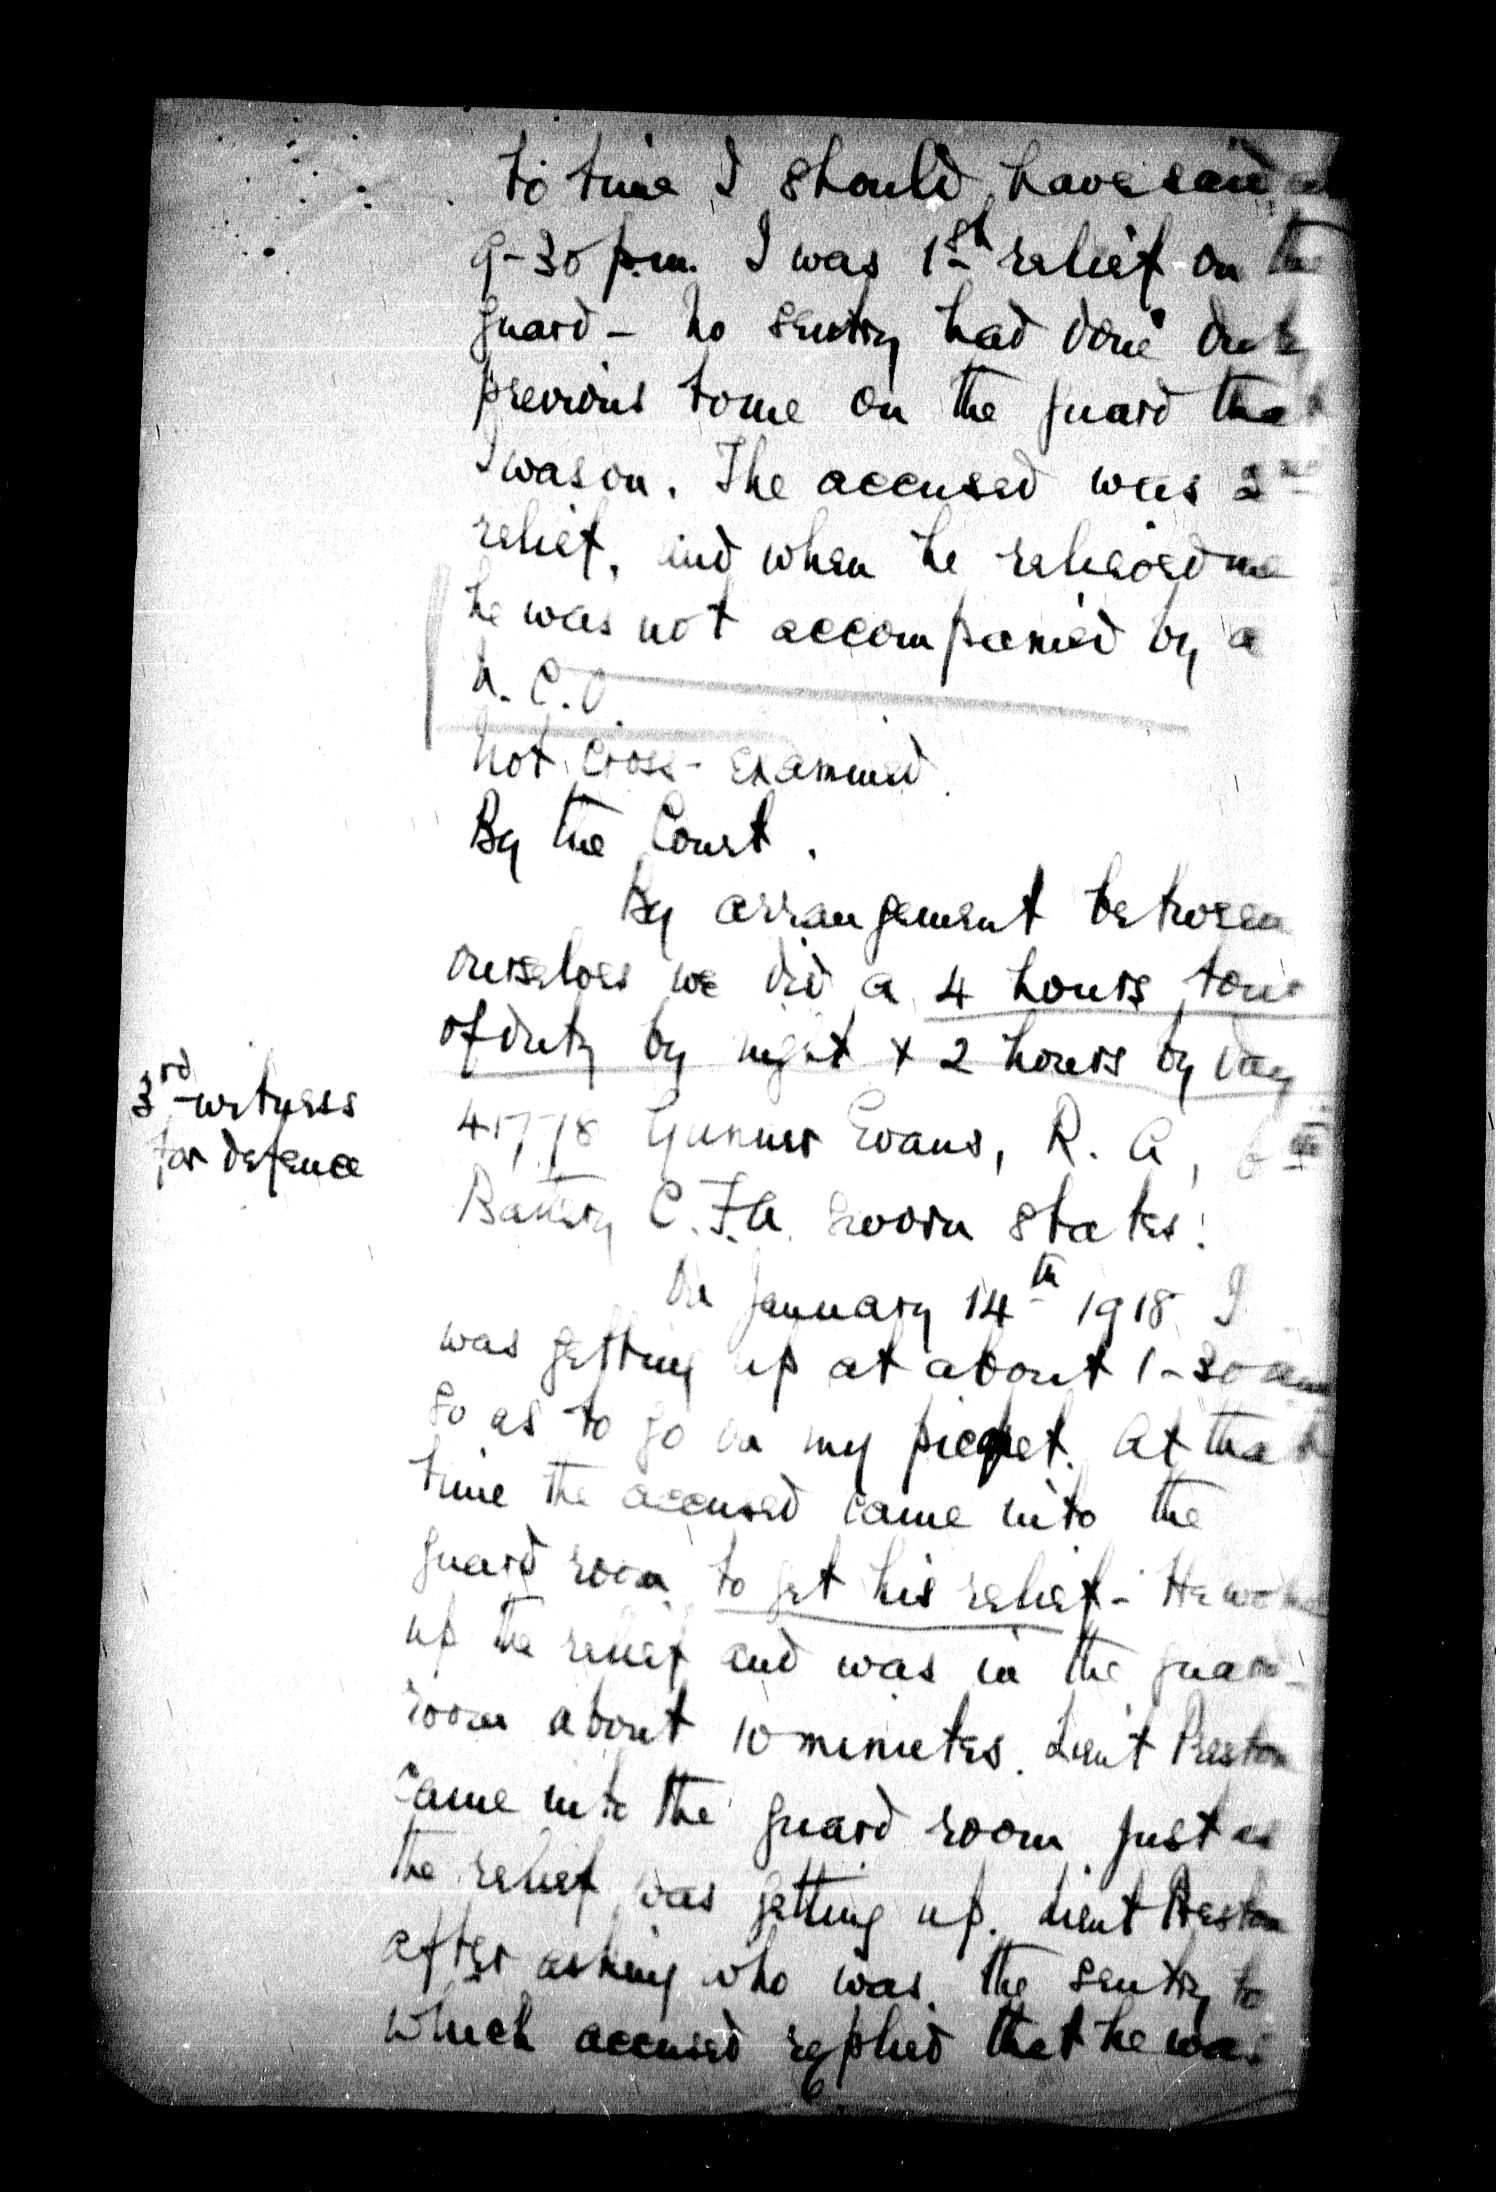 to time I should have said at
9-30 p.m. I was 1st relief on the
guard - no sentry had done duty
previous to me on the guard that
I was on. The accused was 2nd
relief, and when he relieved me
he was not accompanied by a
N.C.O.
Not cross-examined.
By the Court.
By arrangement between
ourselves we did a 4 hours tour
of duty by night + 2 hours by day
3rd witness
for defence
41778 Gunner Evans, R. A,
Battery C.F.A. sworn states:
On January 14th 1918 I
was getting up at about 1-30 am
so as to go on my picquet. At that
time the accused came into the
guard room to get his relief - He woke
up the relief and was in the guard
room about 10 minutes. Lieut Preston
came into the guard room just as
the relief was getting up. Lieut Preston
after asking who was the sentry to
which accused replied that he was
6